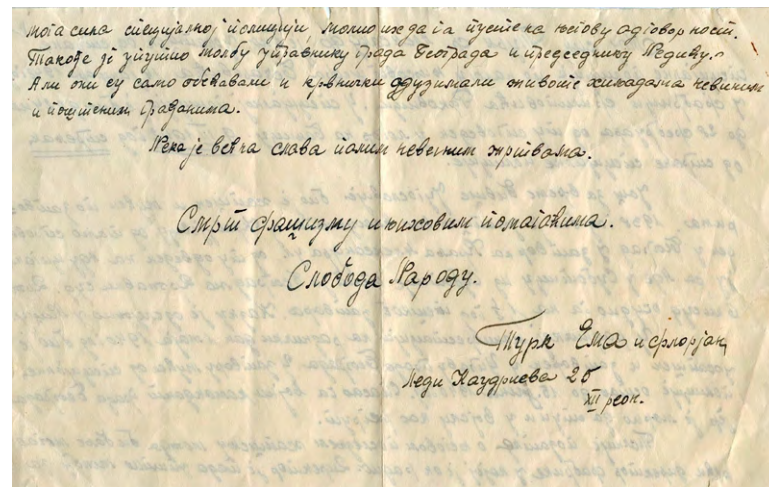 мога сина специјалној полицији, молио их да га пусте на његову одговорност.
Такође је упутио молбу управнику града Београда и председнику Недићу.
Али они су само обећавали и крвнички одузимали животе хиљадама невиним
и поштеним грађанима.
Нека је вечна слава палим невиним жртвама.
Смрт фашизму и њиховим помагачима.
Слобода Народу.
Турк Ема и Флоријан
Леди Каудриева 26
XII реон.